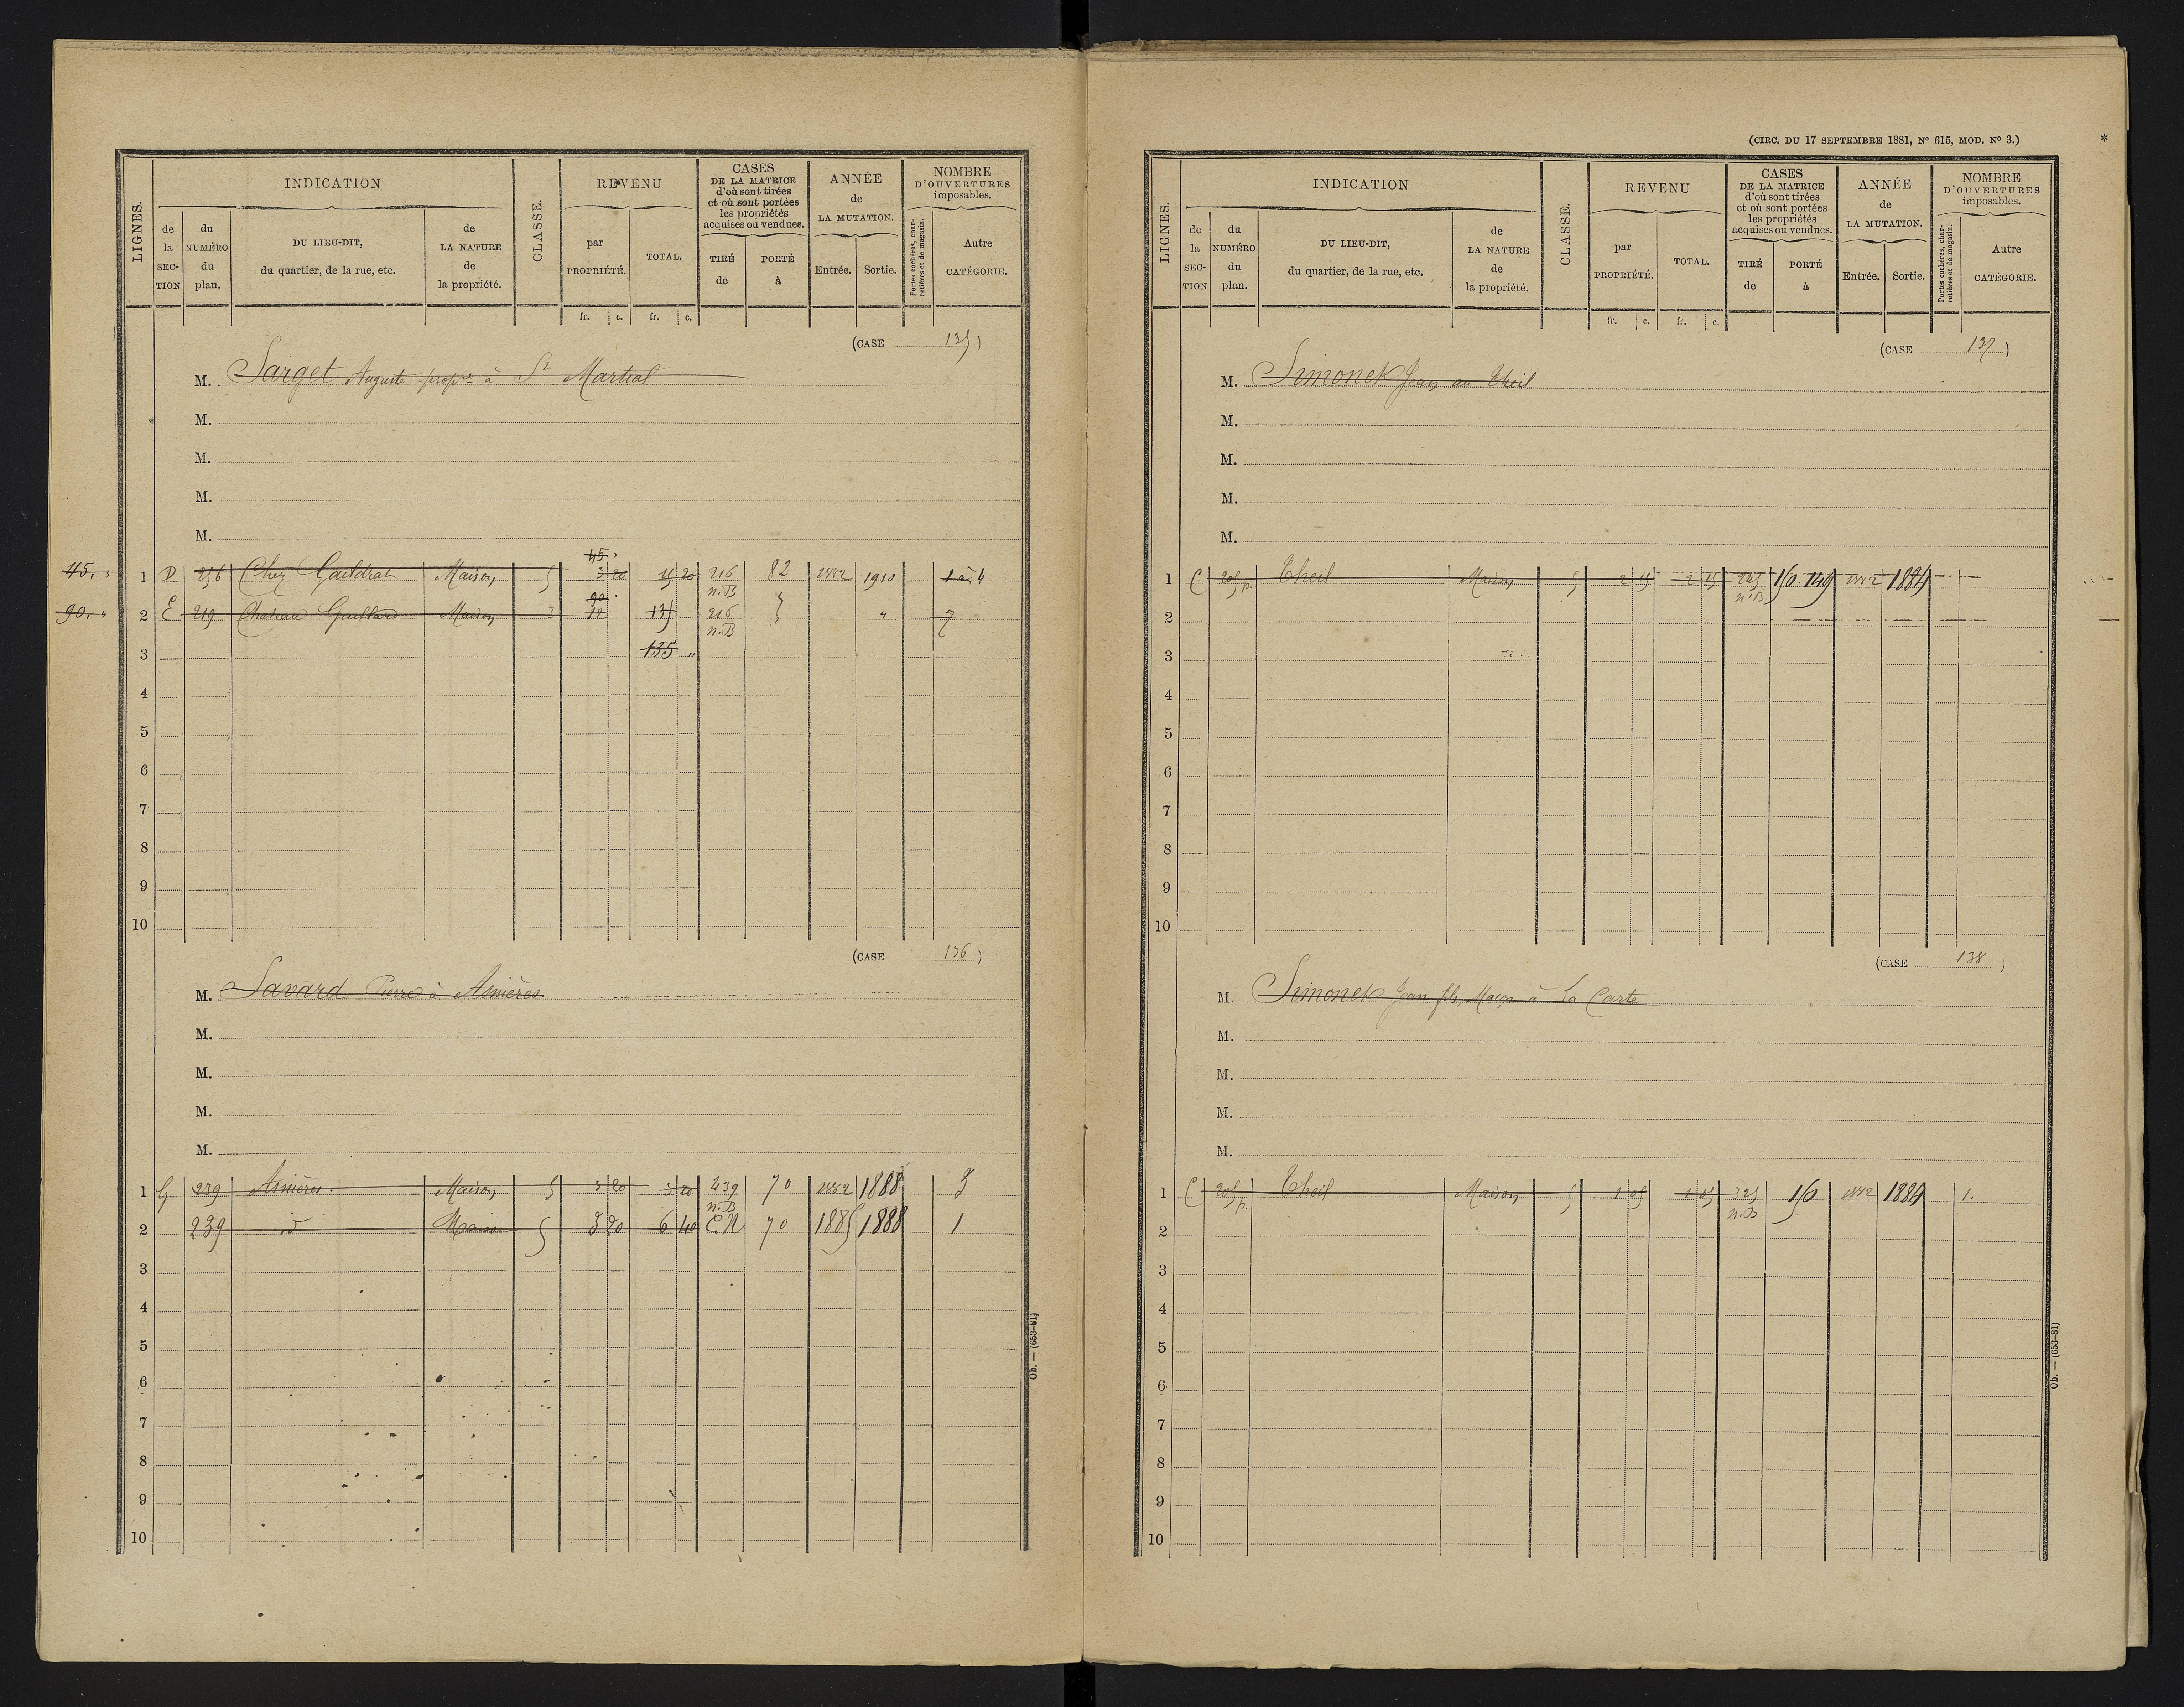 LIGNES.
INDICATION
de la SEC-TION
du NUMÉRO du plan.
DU LIEU-DIT, du quartier, de la rue, etc.
de LA NATURE de la propriété.
CLASSE.
REVENU
par PROPRIÉTÉ.
TOTAL.
CASES DE LA MATRICE d'où sont tirées et où sont portées les propriétés acquises ou vendues.
TIRÉ de
PORTÉ à
ANNÉE de LA MUTATION.
Entrée.
Sortie.
NOMBRE D'OUVERTURES imposables.
Portes cochères, charretières et de magasin.
Autre CATÉGORIE.
fr. c. fr. c.
(CASE 135)
M. Sarget Auguste propre à St Martial
M.
M.
M.
M.
45. "
45. "
1 D 256 Chez Gaildrat Maison 5 3 20 15 20 216 n.B 82 1882 1910 1 à 4
90. "
90.
2 E 219 Chateau Gaillard Maison 3 12 135 216 n.B " 7
3 135 "
4
5
6
7
8
9
10
(CASE 136)
M. Savard Pierre à Asnières
M.
M.
M.
M.
1 G 239 Asnières. Maison 5 3 20 3 20 239 n.B 70 1882 1888 3
2 239 d° Maison 5 3 20 6 40 C.N 70 1885 1888 1
3
4
5
6
7
8
9
10
Ob. — (653-81)
(CIRC. DU 17 SEPTEMBRE 1881, N° 615, MOD. N° 3.) *
LIGNES.
INDICATION
de la SEC-TION
du NUMÉRO du plan.
DU LIEU-DIT, du quartier, de la rue, etc.
de LA NATURE de la propriété.
CLASSE.
REVENU
par PROPRIÉTÉ.
TOTAL.
CASES DE LA MATRICE d'où sont tirées et où sont portées les propriétés acquises ou vendues.
TIRÉ de
PORTÉ à
ANNÉE de LA MUTATION.
Entrée.
Sortie.
NOMBRE D'OUVERTURES imposables.
Portes cochères, charretières et de magasin.
Autre CATÉGORIE.
fr. c. fr. c.
(CASE 137)
M. Simonet Jean au Theil
M.
M.
M.
M.
1 C 205 p. Theil Maison 5 2 15 2 15 n.B 150 149 1882 1884
2
3
4
5
6
7
8
9
10
(CASE 138)
M. Simonet Jean fils, Maçon à La Carte
M.
M.
M.
M.
1 C 205 p. Theil Maison 5 1 05 1 05 325 n.B 150 1882 1884 1.
2
3
4
5
6
7
8
9
10
Ob. — (653-81)